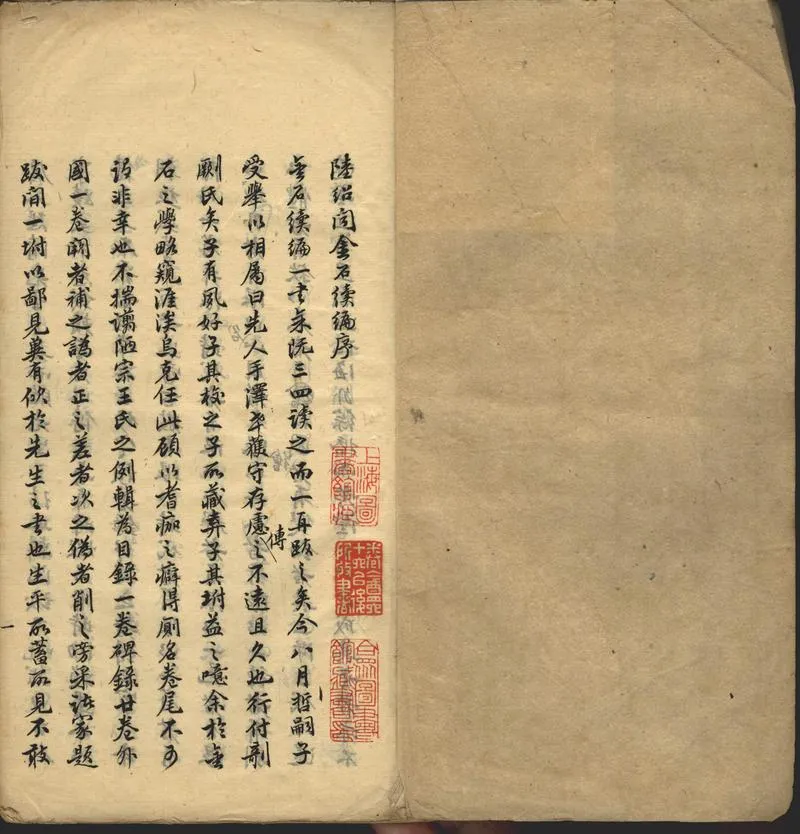 陸紹聞金石續編序
金石續編一書余既三四讀之而一再跋之矣今八月哲嗣子
受舉以相屬曰先人手澤幸獲守存慮傳之不遠且久也行付剞
劂氏矣子有夙好子其校之子所藏弆子其坿益之噫余於金
石之學略窺涯涘烏克任此顧以耆痂之癖得厠名卷尾不可
謂非幸也不揣譾陋宗王氏之例輯為目錄一卷碑錄廿卷外
國一卷闕者補之譌者正之差者次之偽者削之旁采諸家題
跋間一坿以鄙見冀有佽於先生之書也生平所蓄所見不敢
一
上海圖書館藏